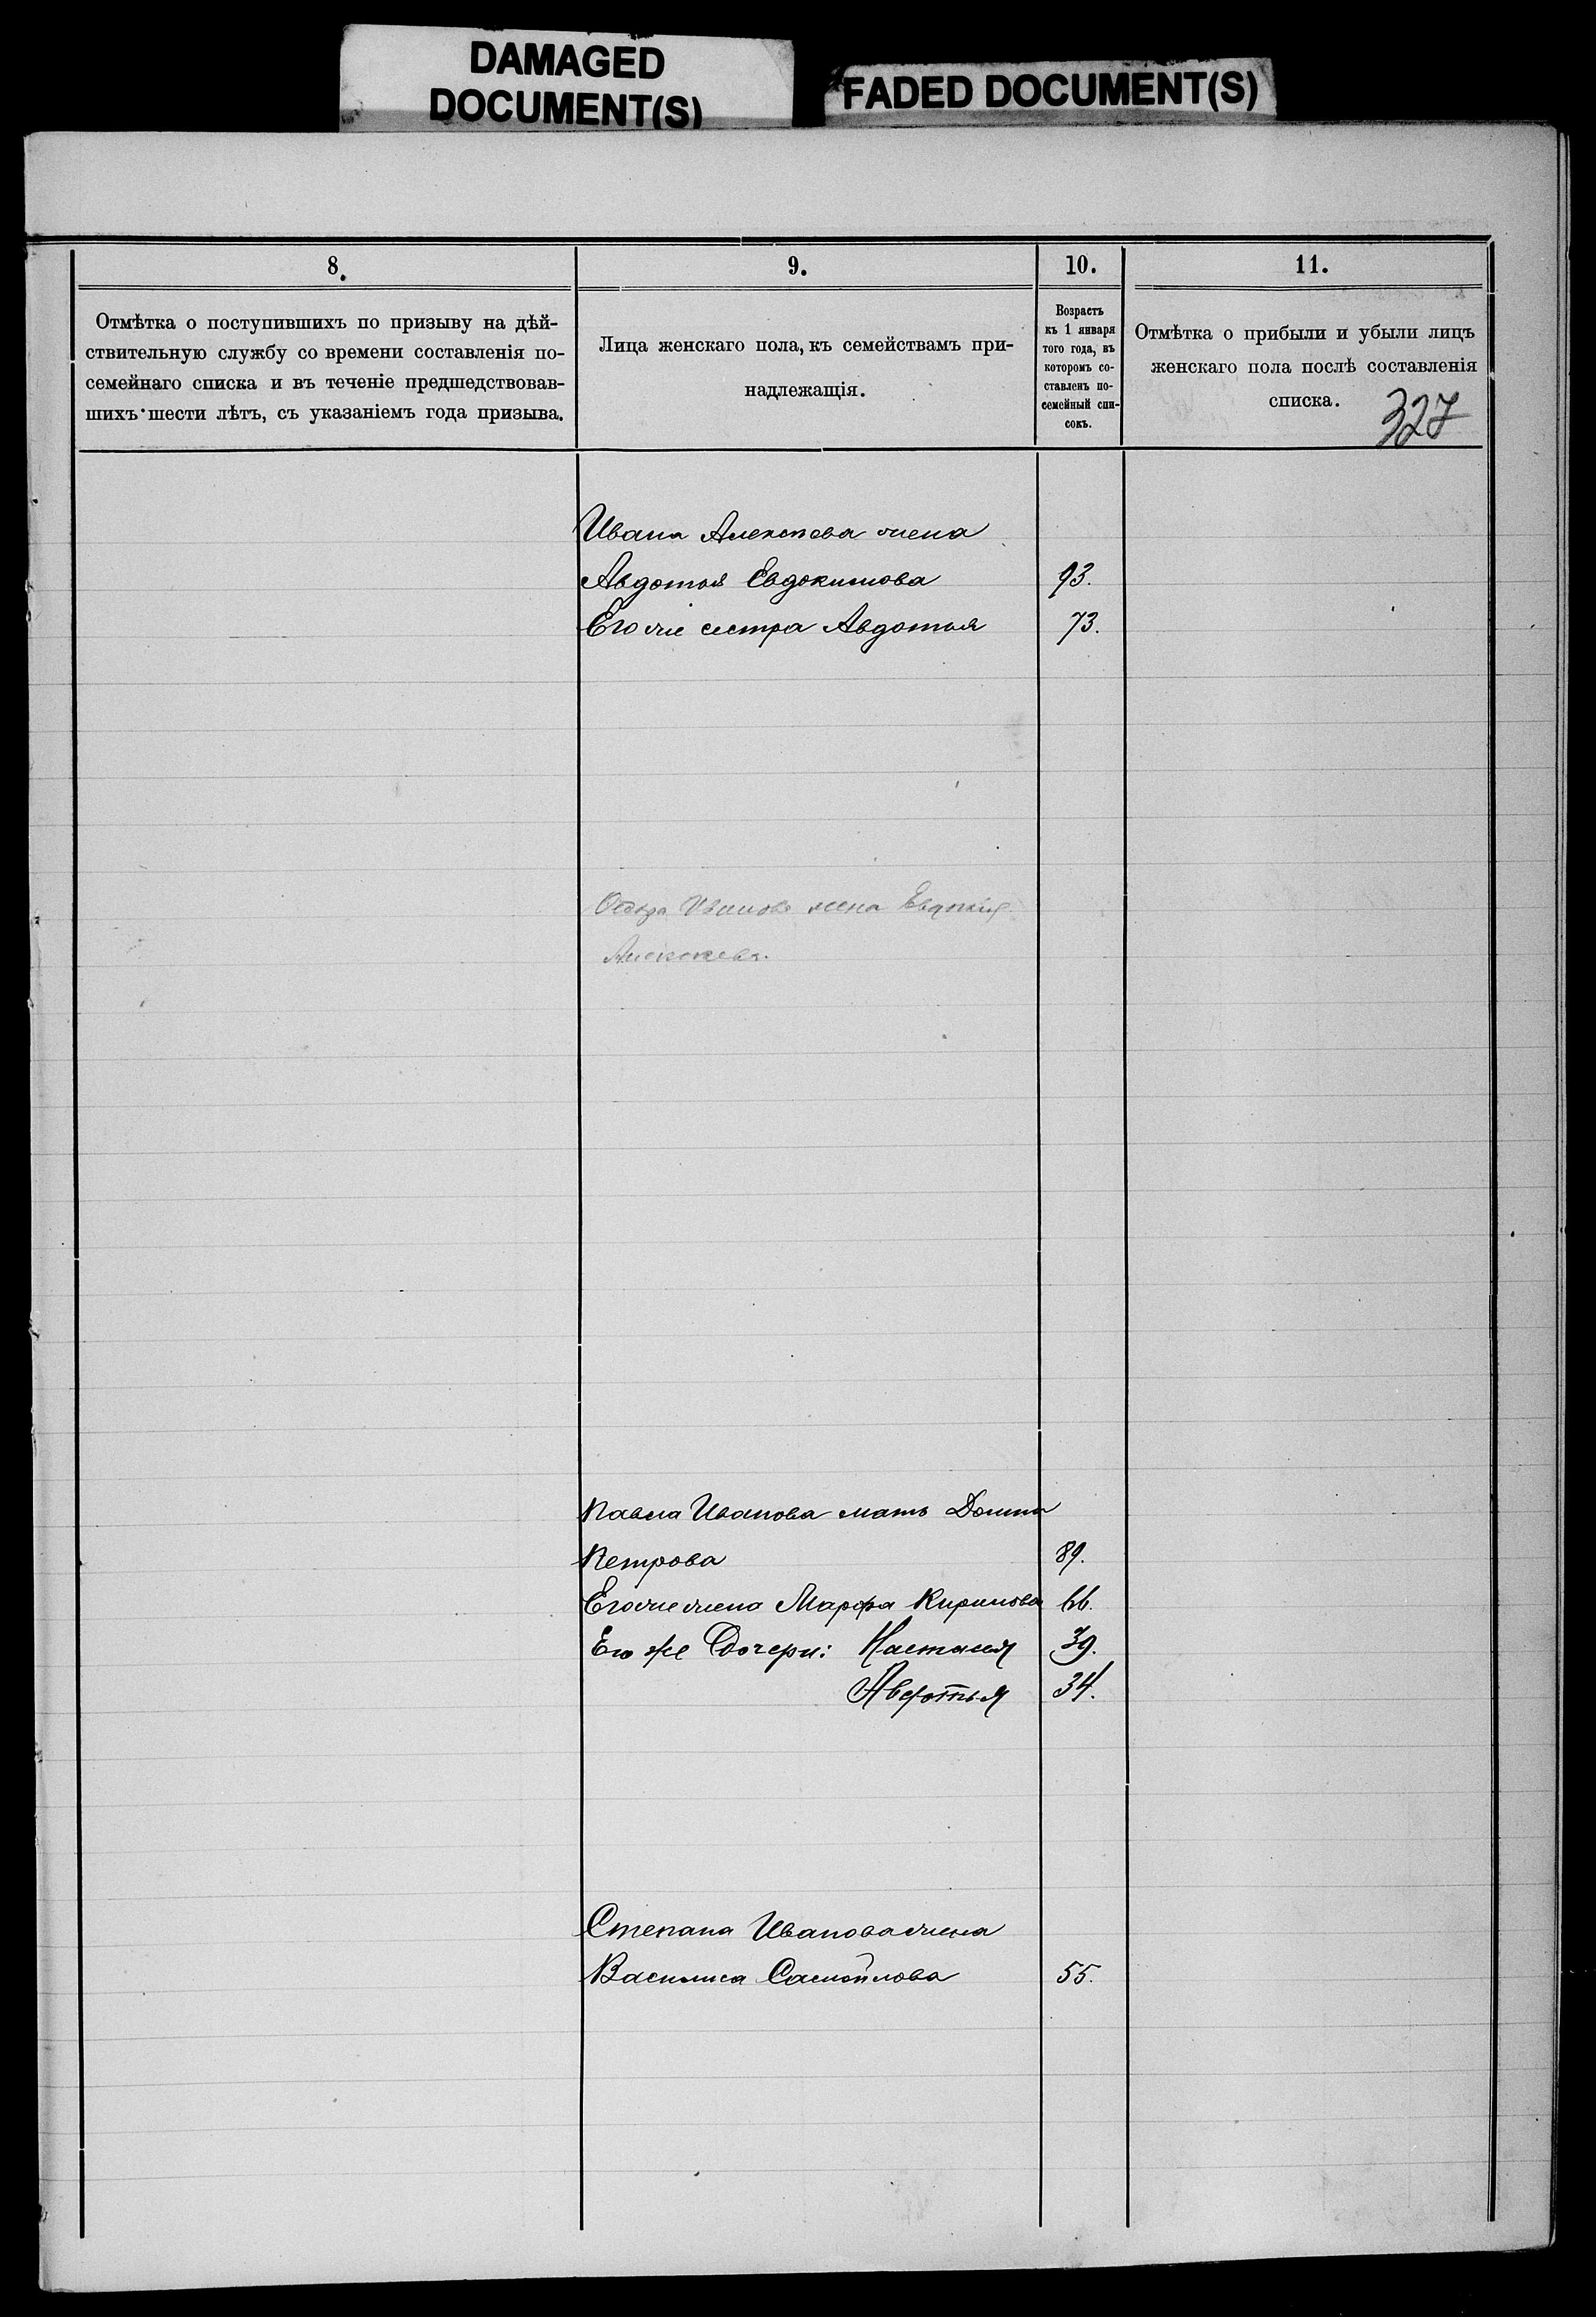 DAMAGED
DOCUMENT(S)
FADED DOCUMENT(S)
8.
Отмѣтка о поступившихъ по призыву на дѣй-
ствительную службу со времени составленія по-
семейнаго списка и въ теченіе предшедствовав-
шихъ шести лѣтъ, съ указаніемъ года призыва.
9.
Лица женскаго пола, къ семействамъ при-
надлежащія.
10.
Возрастъ
къ 1 января
того года, въ
которомъ со-
ставленъ по-
семейный спи-
сокъ.
11.
Отмѣтка о прибыли и убыли лицъ
женскаго пола послѣ составленія
списка.
327
Ивана Алексѣева жена
Авдотья Евдокимова 93.
Его же сестра Авдотья 73.
Ивано жена Евдокія
Алексеева.
Павла Иванова мать Домна
Петрова 89.
Его же жена Марфа Кирилова 66.
Его же Дочери: Настасья 39.
Авдотья 34.
Степана Иванова жена
Василиса Самойлова 55.